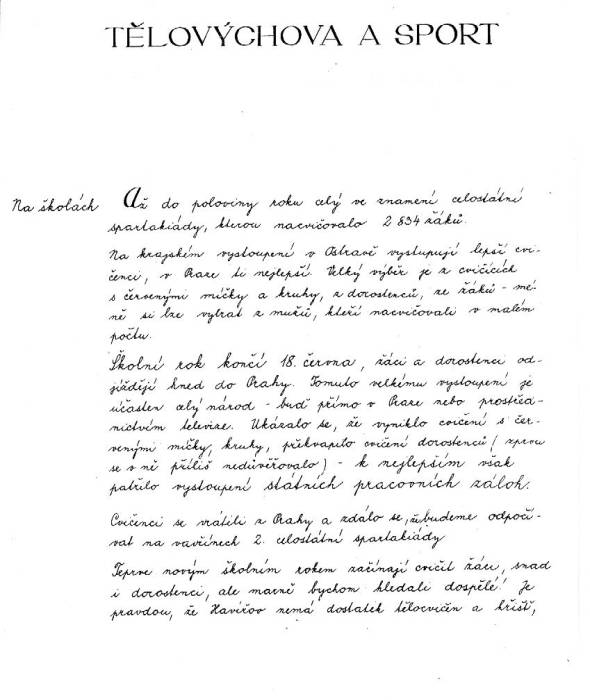 TĚLOVÝCHOVA A SPORT
Na školách Až do poloviny roku celý ve znamení celostátní
spartakiády, kterou nacvičovalo 2 834 žáků.
Na krajském vystoupení v Ostravě vystupují lepší cvi-
čenci, v Praze ti nejlepší. Velký výběr je z cvičících
s červenými míčky a kruhy, z dorostenců, ze žáků - mé-
ně si lze vybrat z mužů, kteří nacvičovali v malém
počtu.
Školní rok končí 18. června, žáci a dorostenci od-
jíždějí hned do Prahy. Tomuto velkému vystoupení je
účasten celý národ - buď přímo v Praze nebo prostřed-
nictvím televize. Ukázalo se, že vyniklo cvičení s čer-
venými míčky, kruhy, překvapilo cvičení dorostenců (zprvu
se v ně příliš nedůvěřovalo) - k nejlepším však
patřilo vystoupení státních pracovních záloh.
Cvičenci se vrátili z Prahy a zdálo se, že budeme odpočí-
vat na vavřínech 2. celostátní spartakiády
Teprve novým školním rokem začínají cvičit žáci, snad
i dorostenci, ale marně bychom hledali dospělé! Je
pravdou, že Havířov nemá dostatek tělocvičen a hřišť,